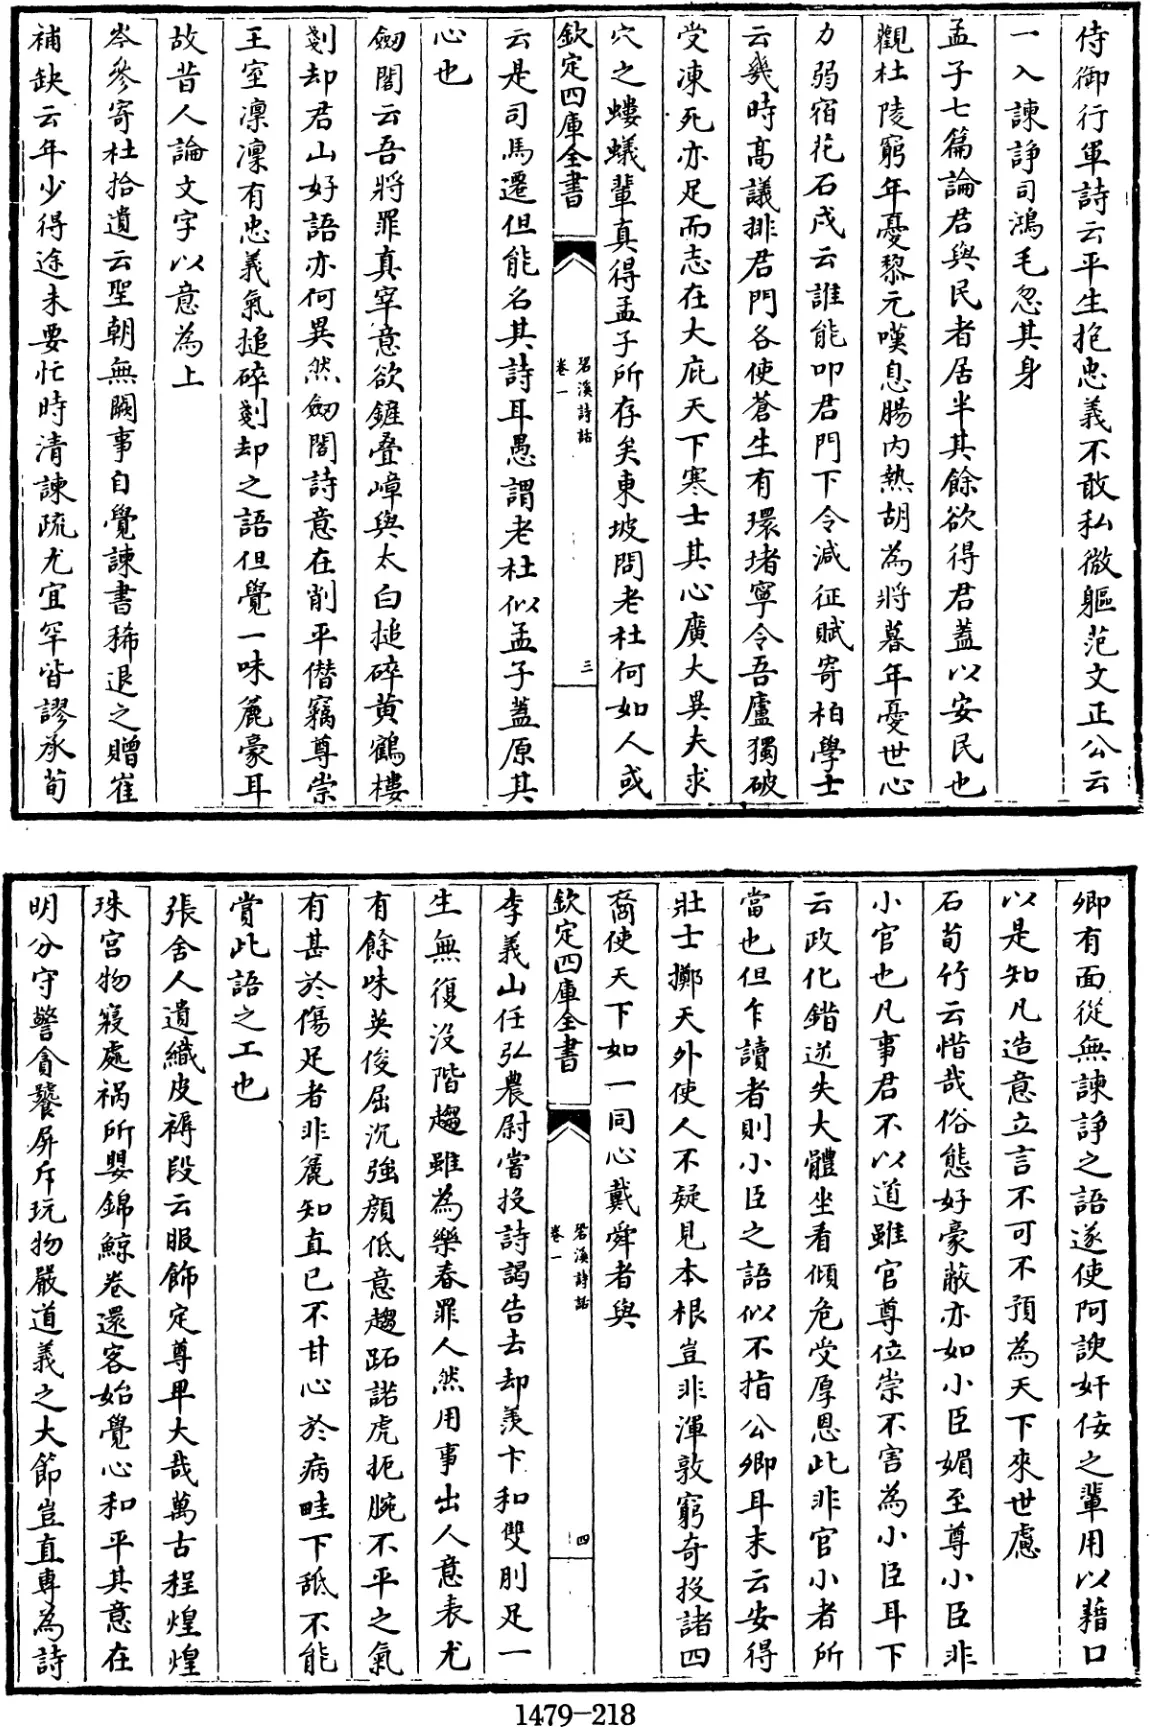 侍御行軍詩云平生抱忠義不敢私微軀范文正公云
一入諫諍司鴻毛忽其身
孟子七篇論君與民者居半其餘欲得君蓋以安民也
觀杜陵窮年憂黎元嘆息腸内熱胡為將暮年憂世心
力弱宿花石戍云誰能叩君門下令減征賦寄柏學士
云幾時髙議排君門各使蒼生有環堵寧令吾廬獨破
受凍死亦足而志在大庇天下寒士其心廣大異夫求
穴之螻蟻輩真得孟子所存矣東坡問老杜何如人或
欽定四庫全書
䂬溪詩話
卷一
三
云是司馬遷但能名其詩耳愚謂老杜似孟子蓋原其
心也
劒閣云吾將罪真宰意欲鏟疊嶂與太白搥碎黄鶴樓
剗却君山好語亦何異然劒閣詩意在削平僣竊尊崇
王室凛凛有忠義氣搥碎剗却之語但覺一味麄豪耳
故昔人論文字以意為上
岑參寄杜拾遺云聖朝無闕事自覺諫書稀退之贈崔
補缺云年少得途未要忙時清諫疏尤宜罕皆謬承荀
卿有面從無諫諍之語遂使阿諛奸佞之輩用以藉口
以是知凡造意立言不可不預為天下來世慮
石荀竹云惜哉俗態好豪蔽亦如小臣媚至尊小臣非
小官也凡事君不以道雖官尊位崇不害為小臣耳下
云政化錯迕失大體坐看傾危受厚恩此非官小者所
當也但乍讀者則小臣之語似不指公卿耳末云安得
壯士擲天外使人不疑見本根豈非渾敦窮奇投諸四
裔使天下如一同心戴舜者與
欽定四庫全書
䂬溪詩話
卷一
四
李義山任弘農尉嘗投詩謁告去却羨卞和雙刖足一
生無復没階趨雖為樂春罪人然用事出人意表尤
有餘味英俊屈沉強顔低意趨跖諾虎扼腕不平之氣
有甚於傷足者非麄知直已不甘心於病畦下舐不能
賞此語之工也
張舍人遺織皮褥段云服飾定尊卑大哉萬古程煌煌
珠宫物寢處禍所嬰錦鯨卷還客始覺心和平其意在
明分守警貪饕屏斥玩物嚴道義之大節豈直専為詩
1479-218